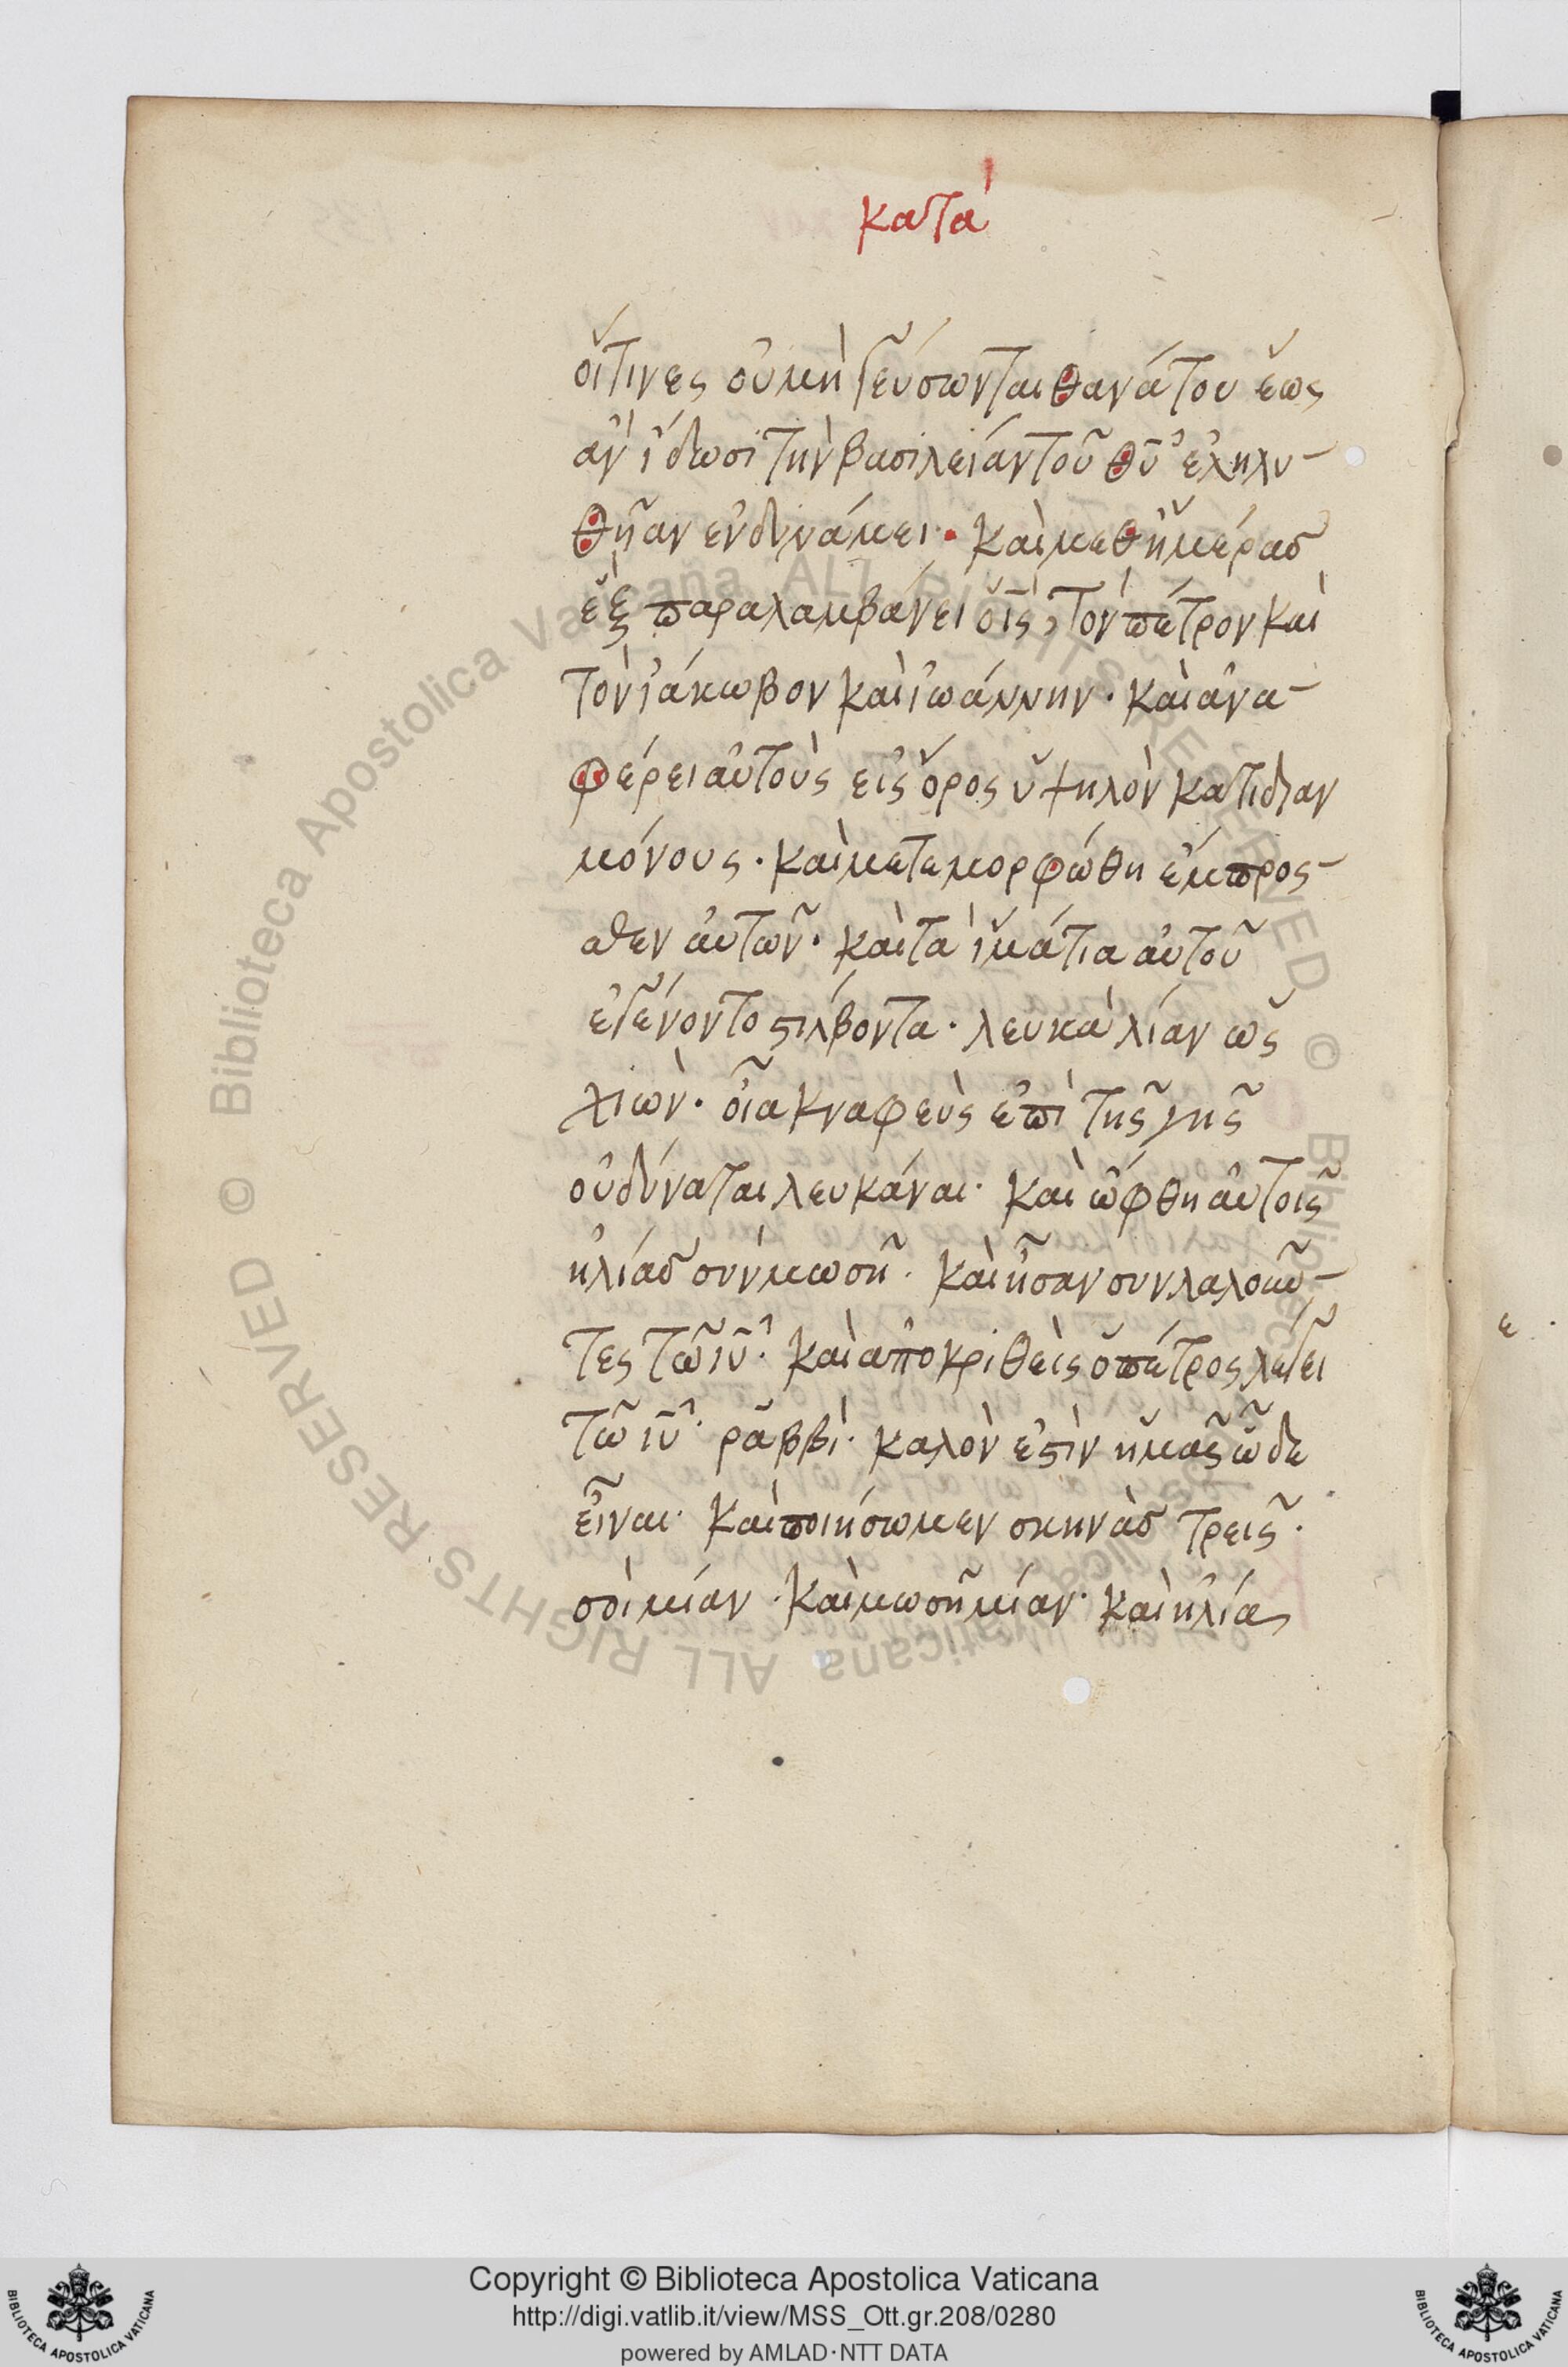 κατὰ
οἵτινες οὐ μὴ γεύσωνται θανάτου ἕως
ἂν ἴδωσι τὴν βασιλείαν τοῦ θ̅υ̅ ἐληλυ-
θῆαν ἐν δυνάμει· καὶ μεθ ἡμέρας
ἓξ παραλαμβάνει ὁ ι̅ς̅, τὸν πέτρον καὶ
τὸν ἰάκωβον καὶ ἰωάννην· καὶ ἀνα-
φέρει αὐτοὺς εἰς ὄρος ὑψηλὸν κατιδίαν
μόνους· καὶ μετεμορφώθη ἔμπροσ-
θεν αὐτῶν· καὶ τὰ ἱμάτια αὐτοῦ
ἐγένοντο στίλβοντα· λευκὰ λίαν ὡς
χιὼν· οἷα κναφεὺς ἐπὶ τῆς γῆς
οὐ δύναται λευκάναι· καὶ ὤφθη αὐτοῖς
ἠλίας σὺν μωσῆ· καὶ ἦσαν συνλαλοῦν-
τες τῶ ι̅υ̅· καὶ ἀποκριθεὶς ὁ πέτρος λέγει
τῶ ι̅υ̅· ῥαββὶ· καλὸν ἐστὶν ἡμᾶς ὧδε
εἶναι· καὶ ποιήσωμεν σκηνὰς τρεῖς·
σοὶ μίαν· καὶ μωσῆ μίαν· καὶ ἠλία
Copyright © Biblioteca Apostolica Vaticana
http://digi.vatlib.it/view/MSS_Ott.gr.208/0280
powered by AMLAD·NTT DATA